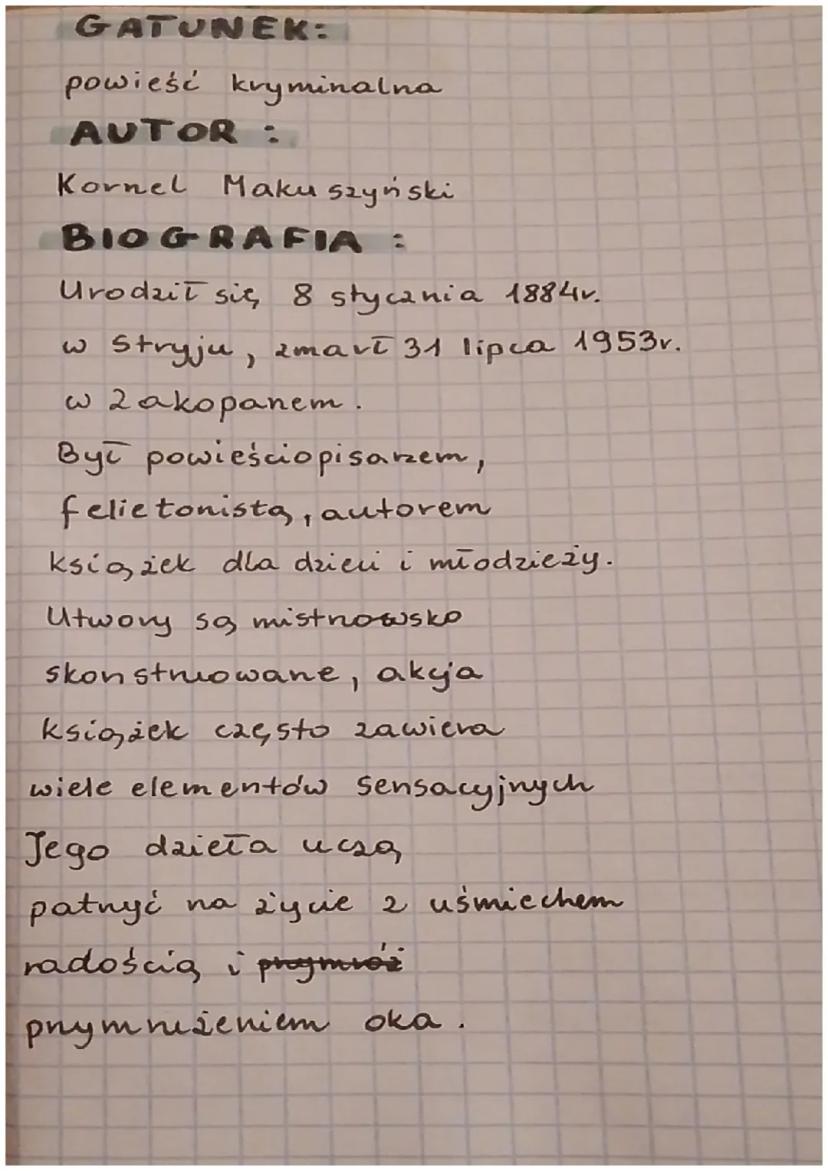 GATUNEK:
powieść kryminalna
AUTOR :
Kornel Makuszyński
BIOGRAFIA :
Urodził się 8 stycznia 1884r.
w Stryju, zmarł 31 lipca 1953r.
w Zakopanem.
Był powieściopisarzem,
felietonistą, autorem
książek dla dzieci i młodzieży.
Utwory są mistrzowsko
skonstruowane, akcja
książek często zawiera
wiele elementów sensacyjnych
Jego dzieła uczą
patrzyć na życie z uśmiechem
radością i
przymrużeniem oka.